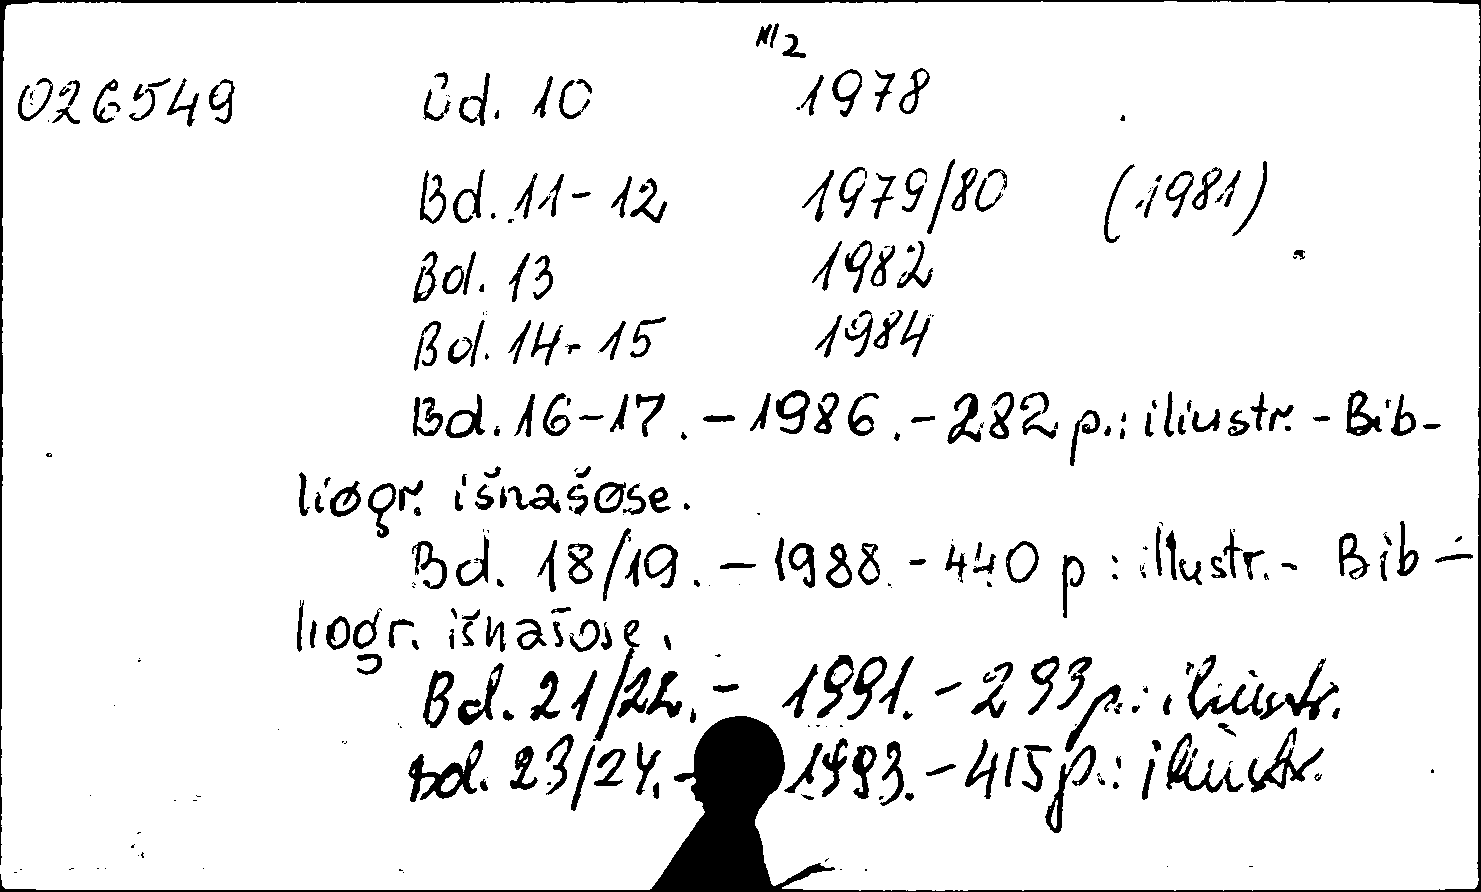 026549 Bd. 10 1978
Bd. 11-12 1979/80 (1981)
Bd. 13 1982
Bd. 14-15 1984
Bd. 16-17. - 1986. - 282 p.: iliustr. - Bib-
liogr. išnašose.
Bd. 18/19. - 1988. - 440 p : iliustr. - Bib-
liogr. išnašose.
Bd. 21/22. - 1991. - 293 p.: iliustr.
Bd. 23/24. - 1993. - 415 p.: iliustr.